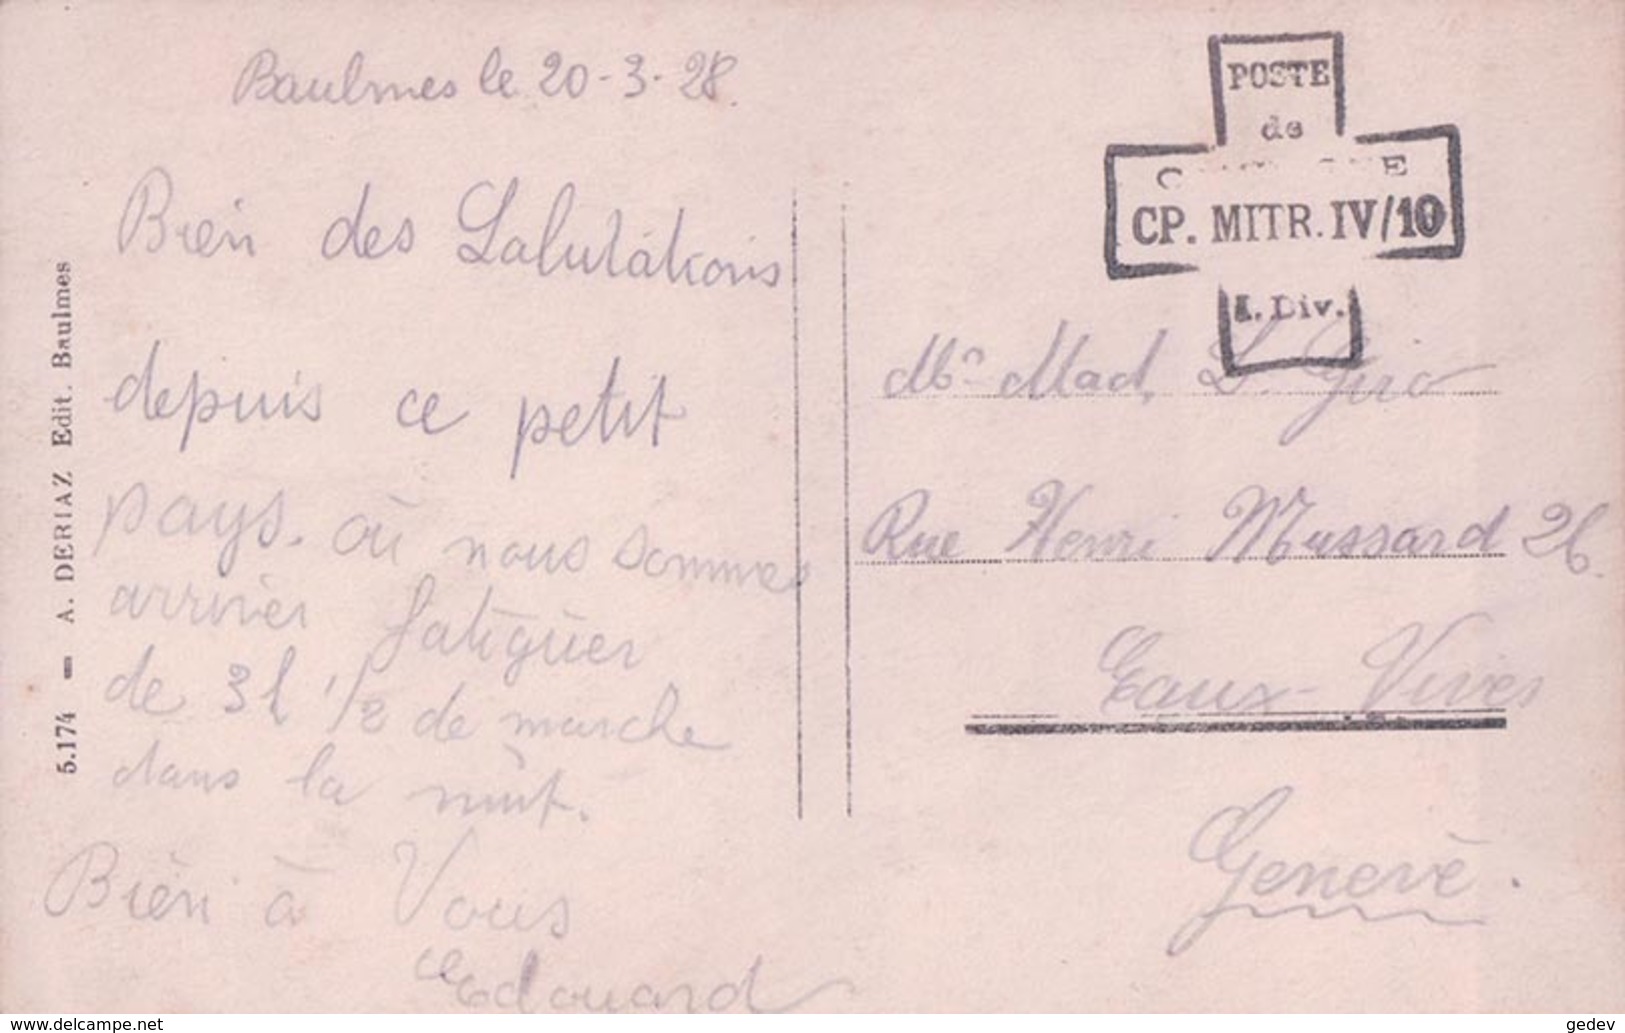 Baulmes le 20-3-28.
Bien des Salutations
depuis ce petit
pays. où nous sommes
arriver fatiguer
de 3h 1/2 de marche
dans la nuit.
Bien à Vous
Edouard
5.174 — A. DERIAZ Edit. Baulmes
POSTE
de
CP. MITR. IV/10
I. Div.
Mr Mad. L. Giro
Rue Henri Mussard 26
Eaux-Vives
Genevè.
www.delcampe.net
gedev